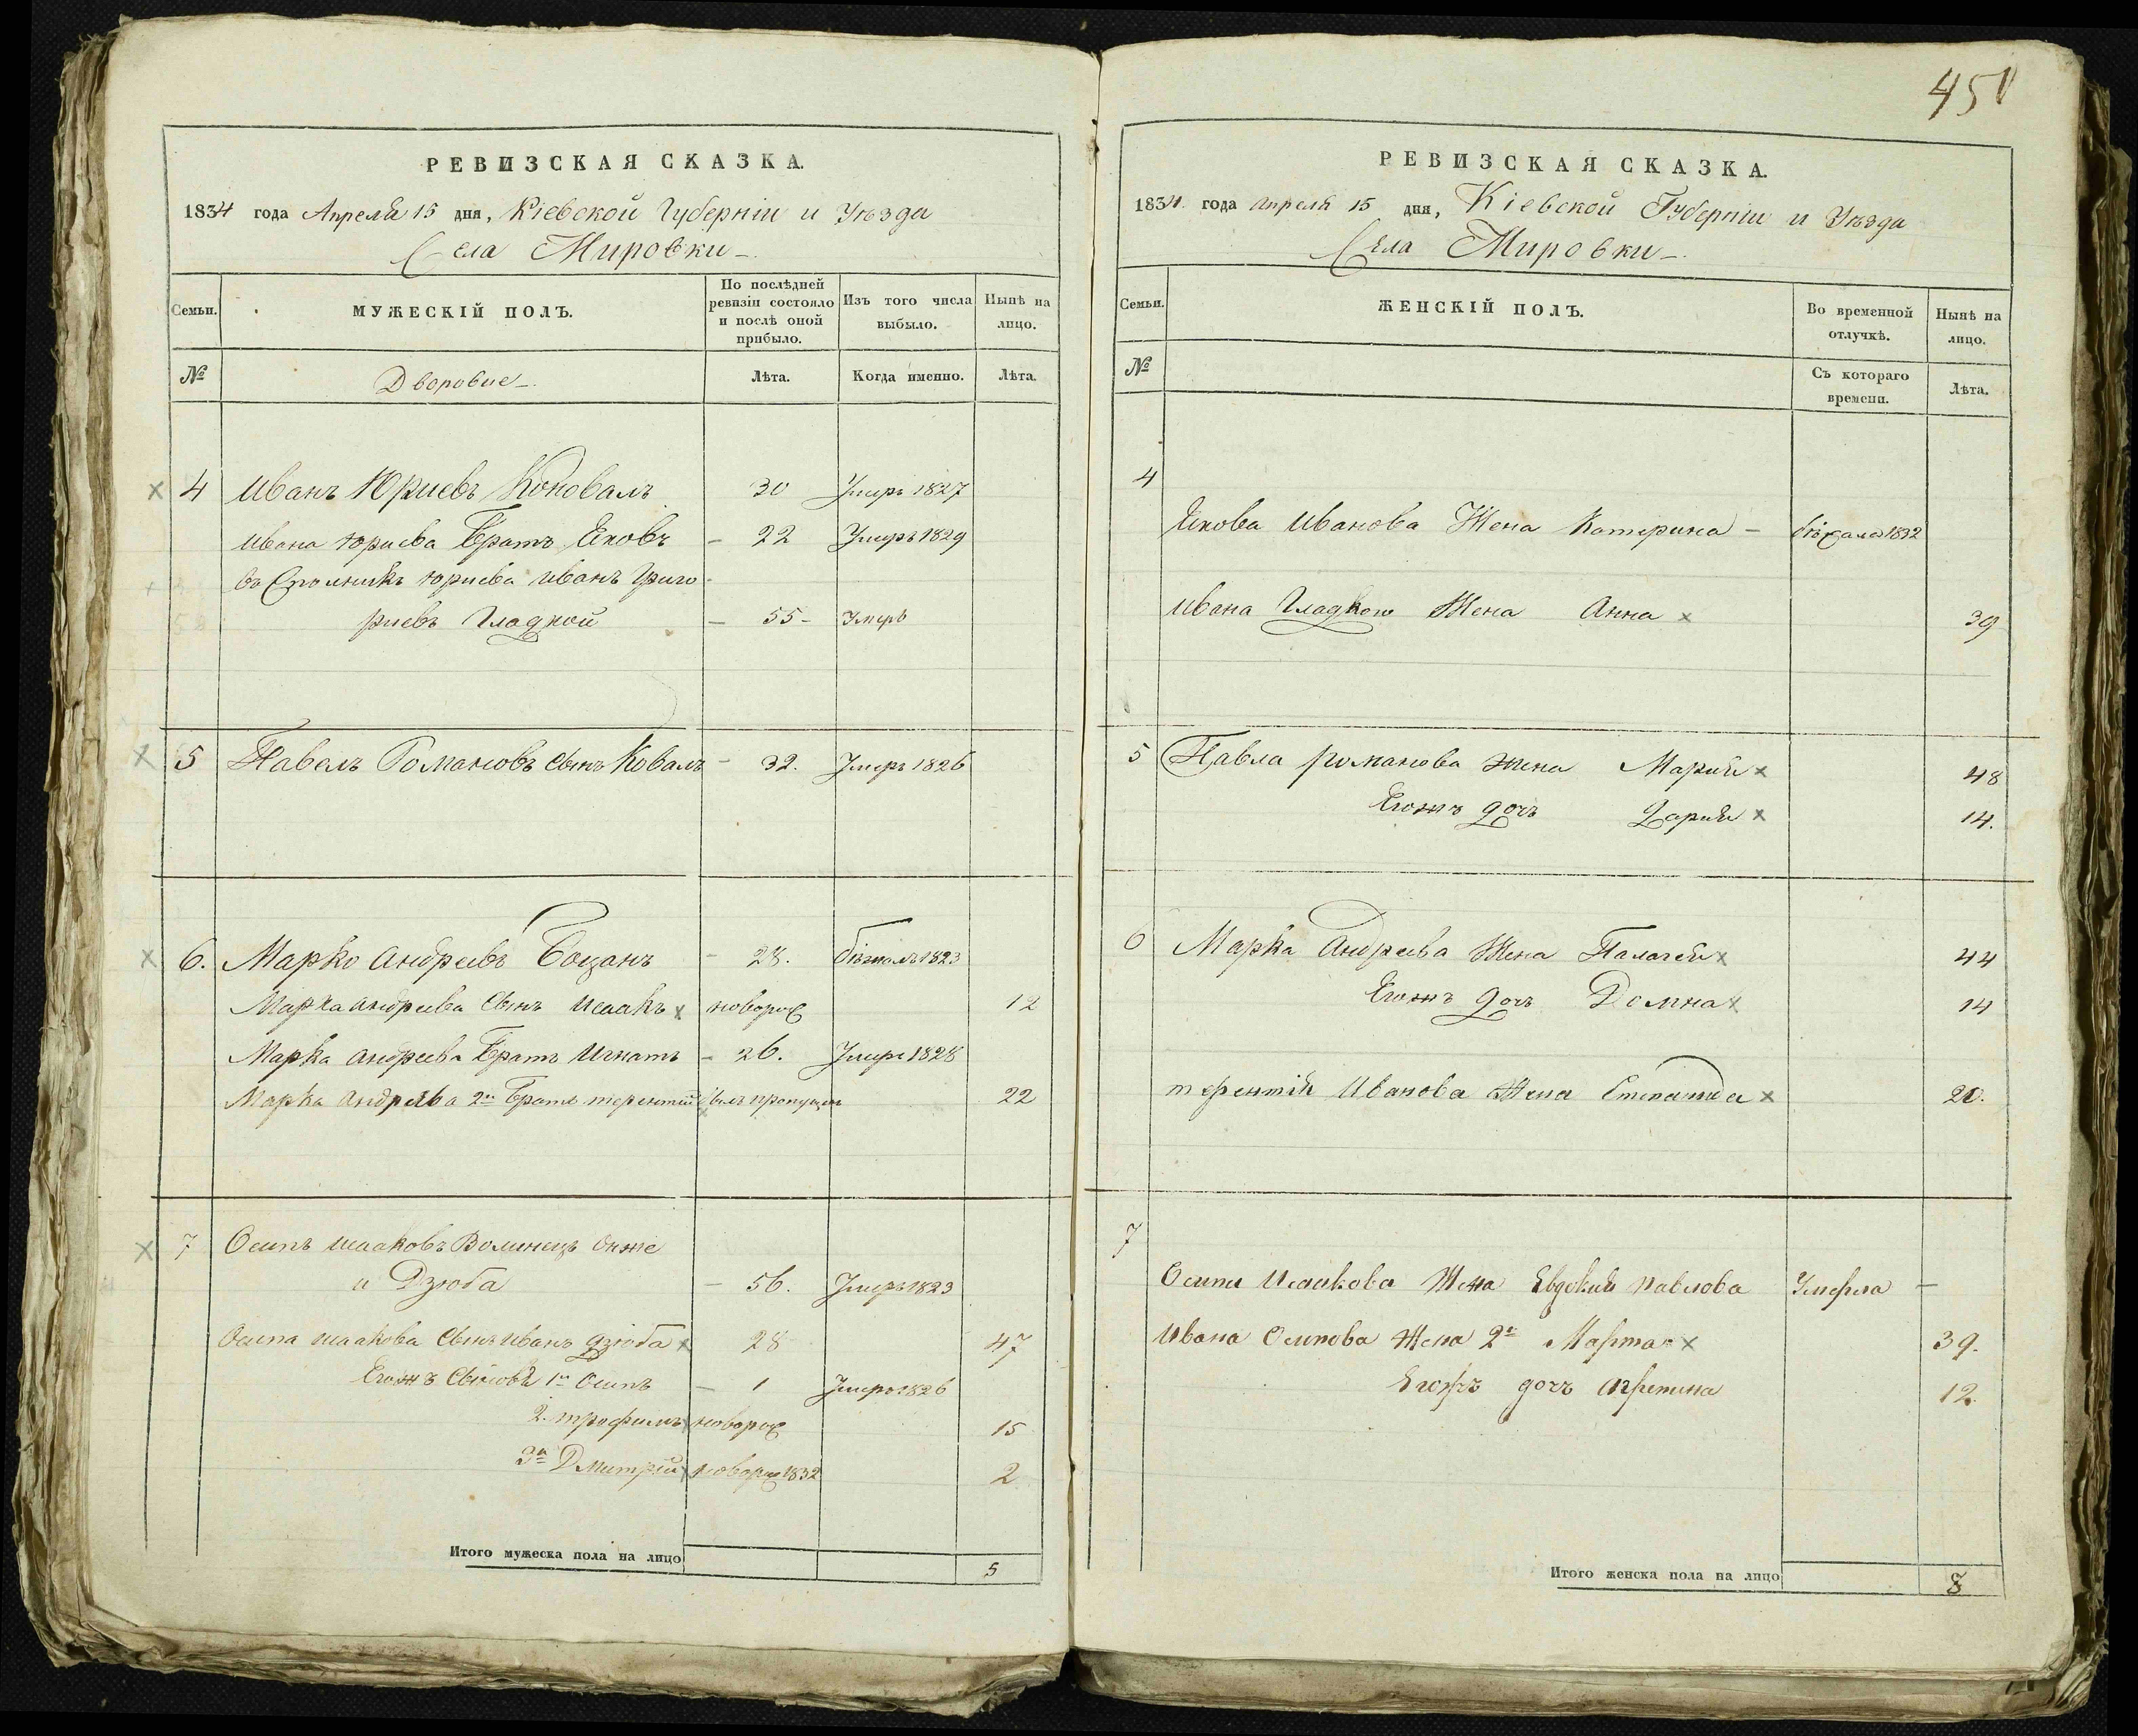 451
РЕВИЗСКАЯ СКАЗКА.
1834 года Апреля 15 дня, Кіевской Губерніи и Уѣзда
Села Мировки
Семьи. МУЖЕСКІЙ ПОЛЪ. По послѣдней ревизіи состояло и послѣ оной прибыло. Изъ того числа выбыло. Нынѣ на лицо.
№ Дворовые Лѣта. Когда именно. Лѣта.
4 Иванъ Юриевъ Коновалъ 30 Умеръ 1827
Ивана Юриева Братъ Яковъ – 22 Умеръ 1829
Юриева Иванъ Григо
риевъ Гладкой – 55 – Умеръ
5 Павелъ Романовъ сынъ Коваль – 32. Умеръ 1826
6. Марко Андреевъ – 28. бѣжалъ 1823
Марка Андреева Сынъ Исаакъ х новорож 12
Марка Андреева Братъ Игнатъ – 26. Умеръ 1828
Марка Андреева 2й Братъ терентій былъ пропущенъ 22
7 Осипъ Исааковъ Волинецъ онже
и Дзюба – 56. Умеръ 1823
Осипа Исаакова Сынъ Иванъ Дзюба х 28 47
Егожъ Сыновья 1й Осипъ – 1 Умеръ 1826
2. трофимъ новорож 15
3й Дмитрій новорож 1832 2
Итого мужеска пола на лицо 5
РЕВИЗСКАЯ СКАЗКА.
1834 года апреля 15 дня, Кіевской Губерніи и Уѣзда
Села Мировки
Семьи. ЖЕНСКІЙ ПОЛЪ. Во временной отлучкѣ. Нынѣ на лицо.
№ Съ котораго времени. Лѣта.
4
Якова Иванова Жена Катерина – бѣжала 1832
Ивана Гладкого Жена Анна х 39
5 Павла романова жена Марія х 48
Егожъ дочь Дарія х 14.
6 Марка Андреева Жена Палагея х 44
Егожъ дочь Домна х 14
терентія Иванова Жена Степанида х 20.
7
Осипа Исаакова Жена Евдокія Павлова Умерла –
Ивана Осипова Жена 2я Марта х 39.
Егожъ дочь Агрепина 12.
Итого женска пола на лицо 8